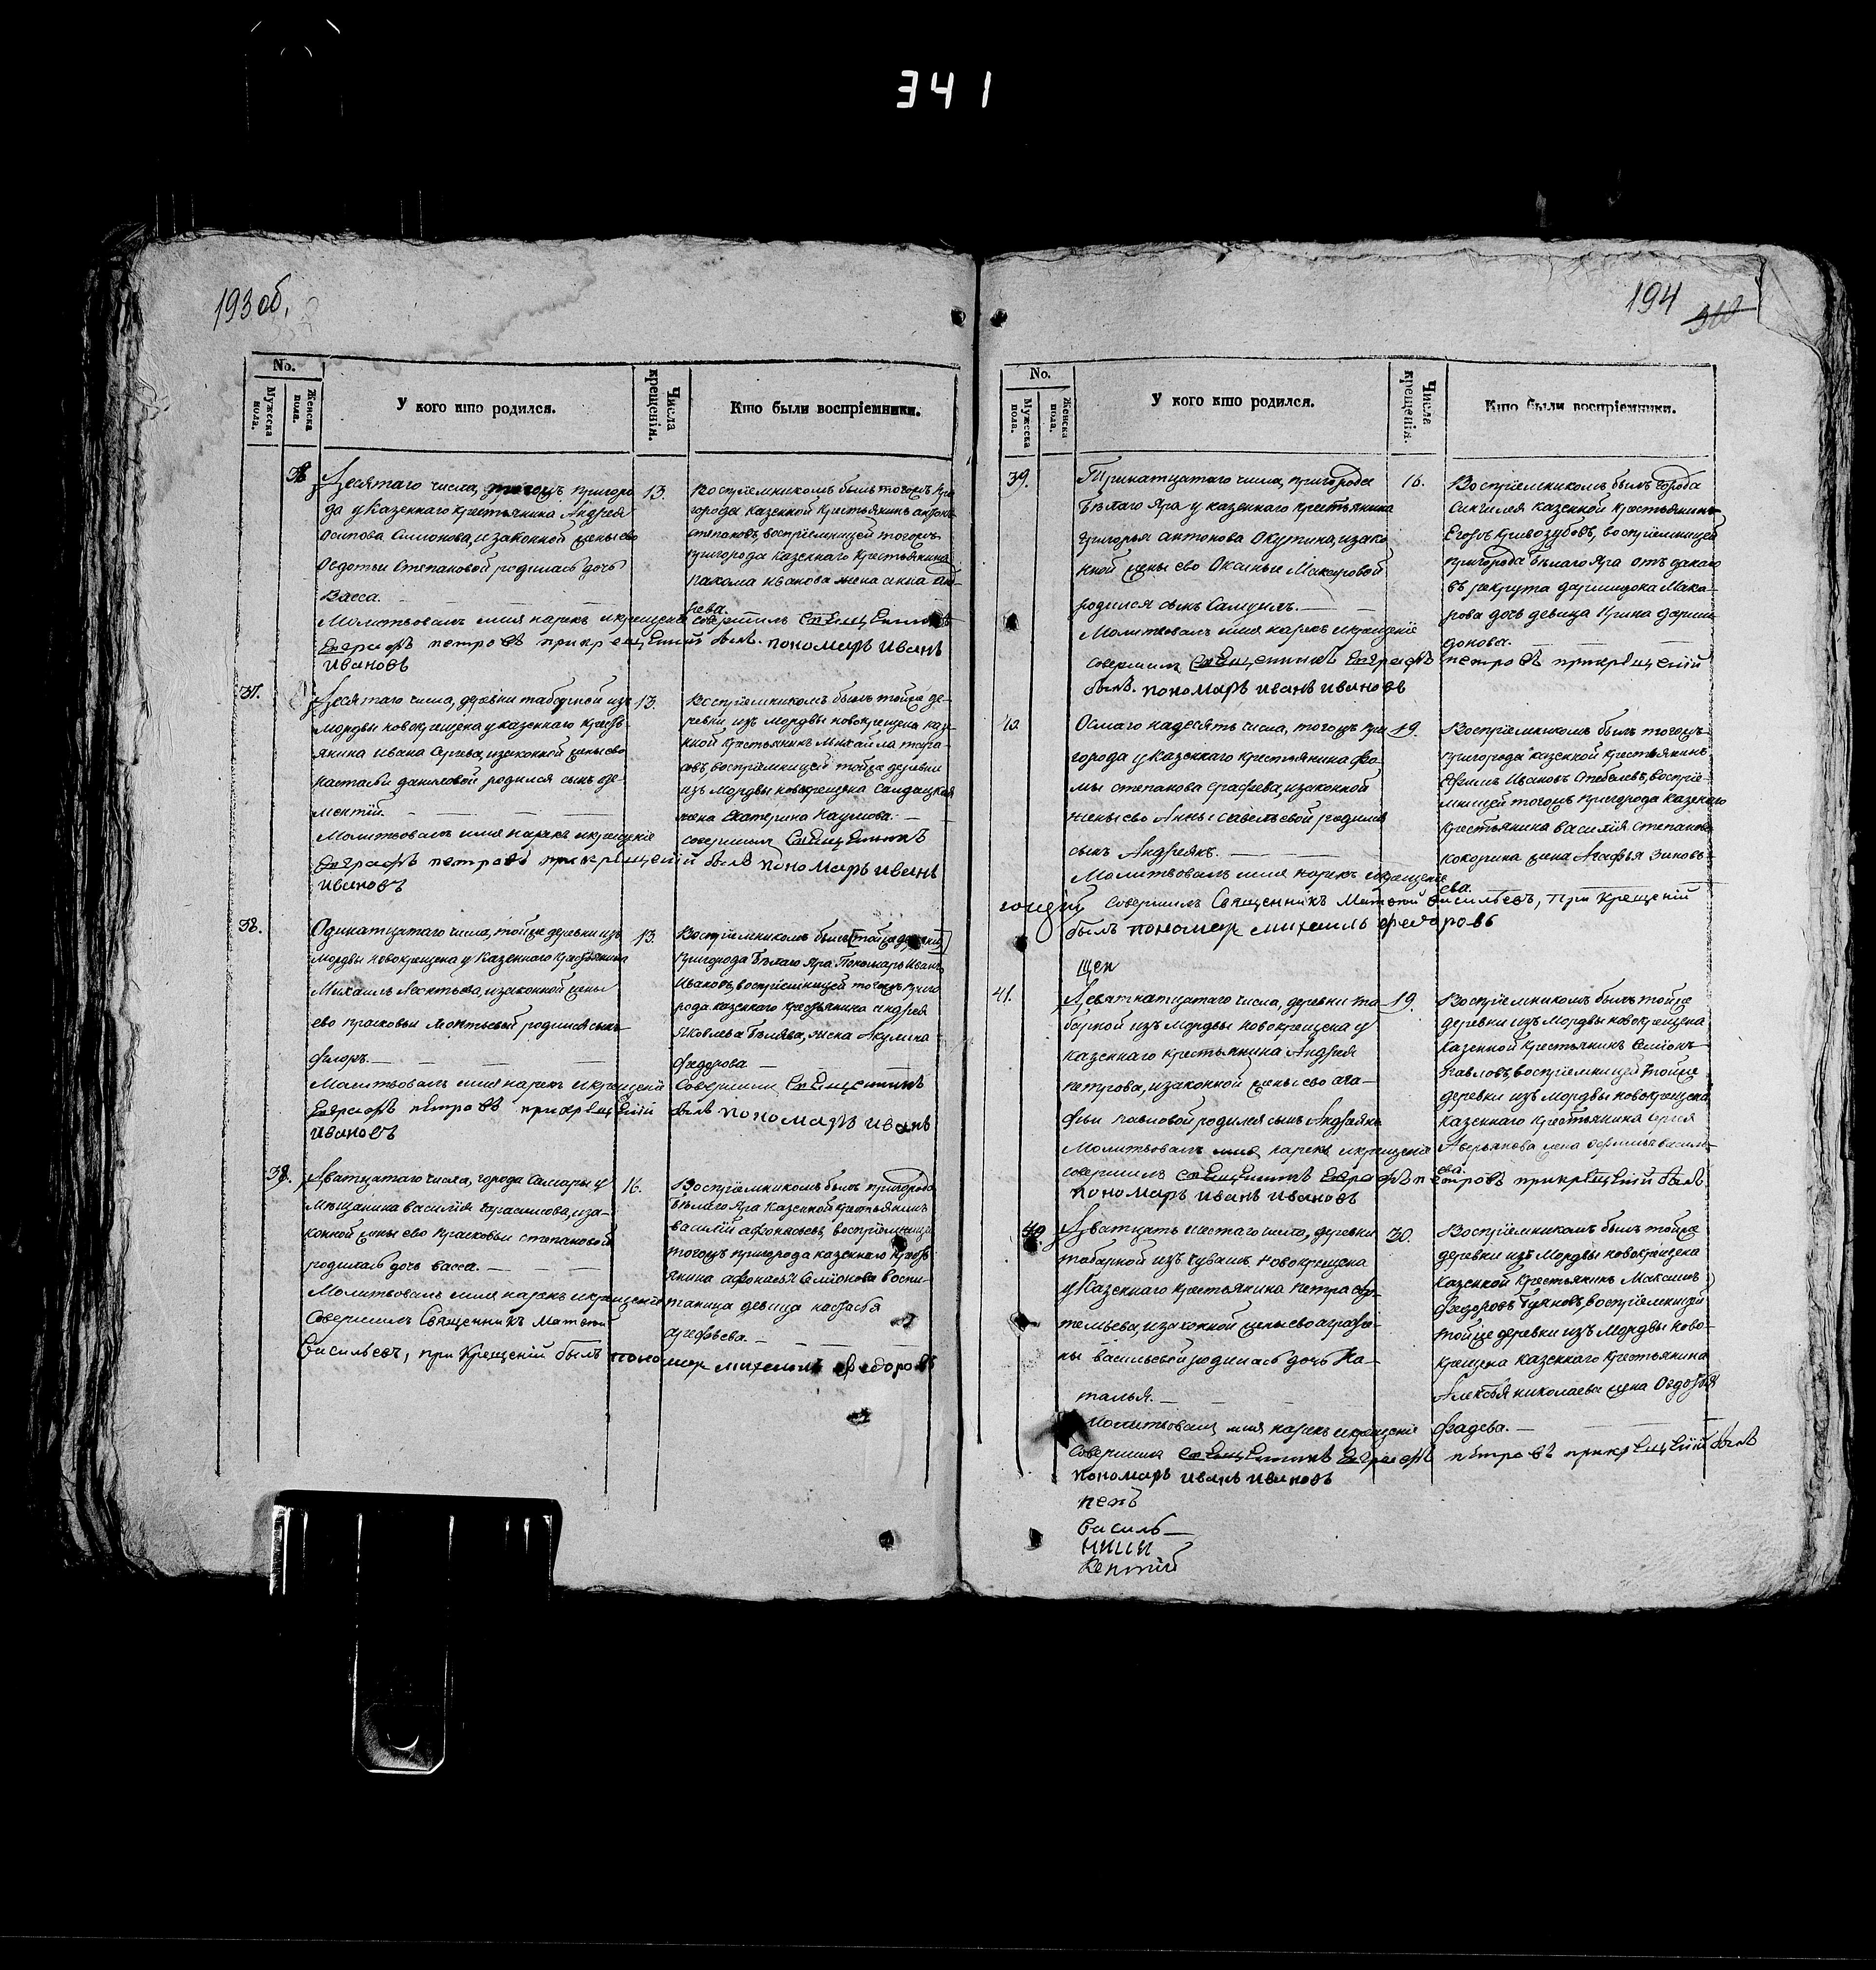 341
193 об.
No.
Мужеска пола.
Женска пола.
У кого кто родился.
Числа крещенія.
Кто были воспріемники.
38
Десятаго числа, тогожъ приго­ро
да у казеннаго крестьянина Андрея
осипова Симонова, изаконной жены ево
Федотьи Степановой родилась дочь
Васса.
Молитвовалъ имя нарекъ икрещение
Евграфъ петровъ прикрещении былъ. пономарь иванъ
ивановъ
13.
Воспріемникомъ былъ тогожъ при
города казенной крестьянинъ
степановъ, воспріемницей тогожъ
пригорода казеннаго крестьянина
иванова жена анна ан-
рева.
совершилъ священникъ
37.
Десятаго числа, деревни табарной изъ
мордвы новокрещена указеннаго кресть-
янина ивана Сергева, изаконной жены ево
настасьи даниловой родился сынъ де-
ментій.
Молитвовалъ имя нарекъ икрещение
Евграфъ петровъ прикрещении былъ пономарь иванъ
ивановъ
13.
Воспріемникомъ былъ тойже де-
ревни изъ мордвы новокрещена каз-
ной крестьянинъ Михайла
овъ, воспріемницей тойже деревни
изъ мордвы новокрещена Салдацкая
жена Екатерина Наумова.
совершилъ священникъ
38.
Одинатцатаго числа, тойже деревни изъ
мордвы новокрещена у Казеннаго крестьянина
Михаила Леонтьева, изаконной жены
ево прасковьи Леонтьевой родился сынъ
Флоръ.
Молитвовалъ имя нарекъ икрещение
Евграфъ петровъ прикрещении былъ пономарь иванъ
ивановъ
13.
Воспріемникомъ былъ [тойже деревни]
пригорода Бѣлаго Яра Пономарь Иванъ
Ивановъ, воспріемницей тогожъ приго
рода казеннаго крестьянина андрея
Яковлева жена Акулина
федорова
Совершилъ священникъ
38.
Дватцатаго числа, города Самары у
мѣщанина василія Гарасимова, иза-
конной жены ево прасковьи степановой
родилась дочь васса.
Молитвовалъ имя нарекъ икрещение
Совершилъ Священникъ Матвей
Васильевъ, при Крещеніи былъ пономарь михаилъ федоровъ
16.
Воспріемникомъ былъ пригорода
Бѣлаго Яра казенной крестьянинъ
василій афонасьев, воспріемница
тогожъ пригорода казеннаго кресть
янина афонасья Семіонова воспи-
таница девица настасья
194
No.
Мужеска пола.
Женска пола.
У кого кто родился.
Числа крещенія.
Кто были воспріемники.
39.
Тринатцатаго числа, пригорода
Бѣлаго Яра у казеннаго крестьянина
григорья антонова Окутина, изако
нной жены ево Оксиньи Макаровой
родился сынъ Самуилъ.
Молитвовалъ имя нарекъ икрещение
совершилъ священникъ Евграфъ петровъ прикрещении
былъ. пономарь иванъ ивановъ
16.
Воспріемникомъ былъ города
Сингилея казенной крестьянинъ
Егоръ Кривозубовъ, воспріемницей
пригорода бѣлаго Яра отъданаго
въ рекрута Мака-
рова дочь девица Ирина
донова.
40.
Осмаго надесять числа, тогожъ при
города у Казеннаго крестьянина фо-
мы степанова ерофеева, изаконной
жены ево Анны савельевой родился
сынъ Андреянъ.
Молитвовалъ имя нарекъ икрещение
Совершилъ Священникъ Матвей Васильевъ, При Крещеніи
былъ пономарь михаилъ федоровъ
19.
Воспріемникомъ былъ тогожъ
пригорода казенной крестьянинъ
Ефимъ Ивановъ воспріе-
мницей тогожъ пригорода Казенаго
Крестьянина василія степанова
кокорина жена Агафья Зиновь-
ева.
щен
41.
Девятнатцатаго числа, деревни та
барной изъ мордвы новокрещена у
казеннаго крестьянина Андрея
петрова, изаконной жены ево ага-
фьи павловой родился сынъ Андреянъ
Молитвовалъ имя нарекъ икрещение
совершилъ священникъ Евграфъ петровъ прикрещении былъ
пономарь иванъ ивановъ
19.
Воспріемникомъ былъ тойже
деревни изъ мордвы новокрещена
казенной крестьянинъ Семіонъ
павловъ, воспріемницей тойже
деревни изъ мордвы новокрещена
казеннаго крестьянина Сергея
Аверьянова жена василь-
ева.
40.
Дватцать шестаго числа, деревни
табарной изъ чувашъ новокрещена
у Казеннаго крестьянина петра ар-
темьева, изаконной жены ево аграфе-
ны васильевой родилась дочь На-
талья.
Молитвовалъ имя нарекъ икрещение
Совершилъ священникъ Евграфъ петровъ прикрещении былъ
пономарь иванъ ивановъ
30.
Воспріемникомъ былъ тойже
деревни изъ мордвы новокрещена
казенной крестьянинъ Максимъ
федоровъ воспріемницей
тойже деревни изъ мордвы ново-
крещена казеннаго крестьянина
Алексея николаева жена Овдотья
фадева.
Василь